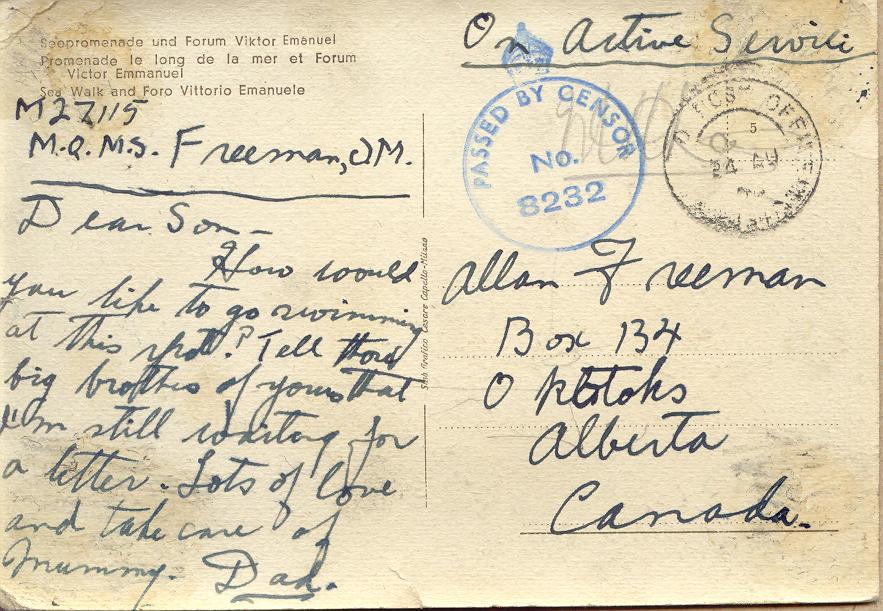 Seepromenade und Forum Viktor Emanuel
Promenade le long de la mer et Forum
Victor Emmanuel
Sea Walk and Foro Vittorio Emanuele
M27115
M.Q.M.S. Freeman, J.M.
Dear Son –
How would
you like to go swimming
at this spot? Tell those
big brothers of yours that
I'm still waiting for
a letter. Lots of love
and take care of
Mummy. Dad.
Stab. Grafico Cesare Capello-Milano
On Active Service
PASSED BY CENSOR
No.
8232
POST OFFICE
5
24 AU
Allan Freeman
Box 134
Okotoks
Alberta
Canada.